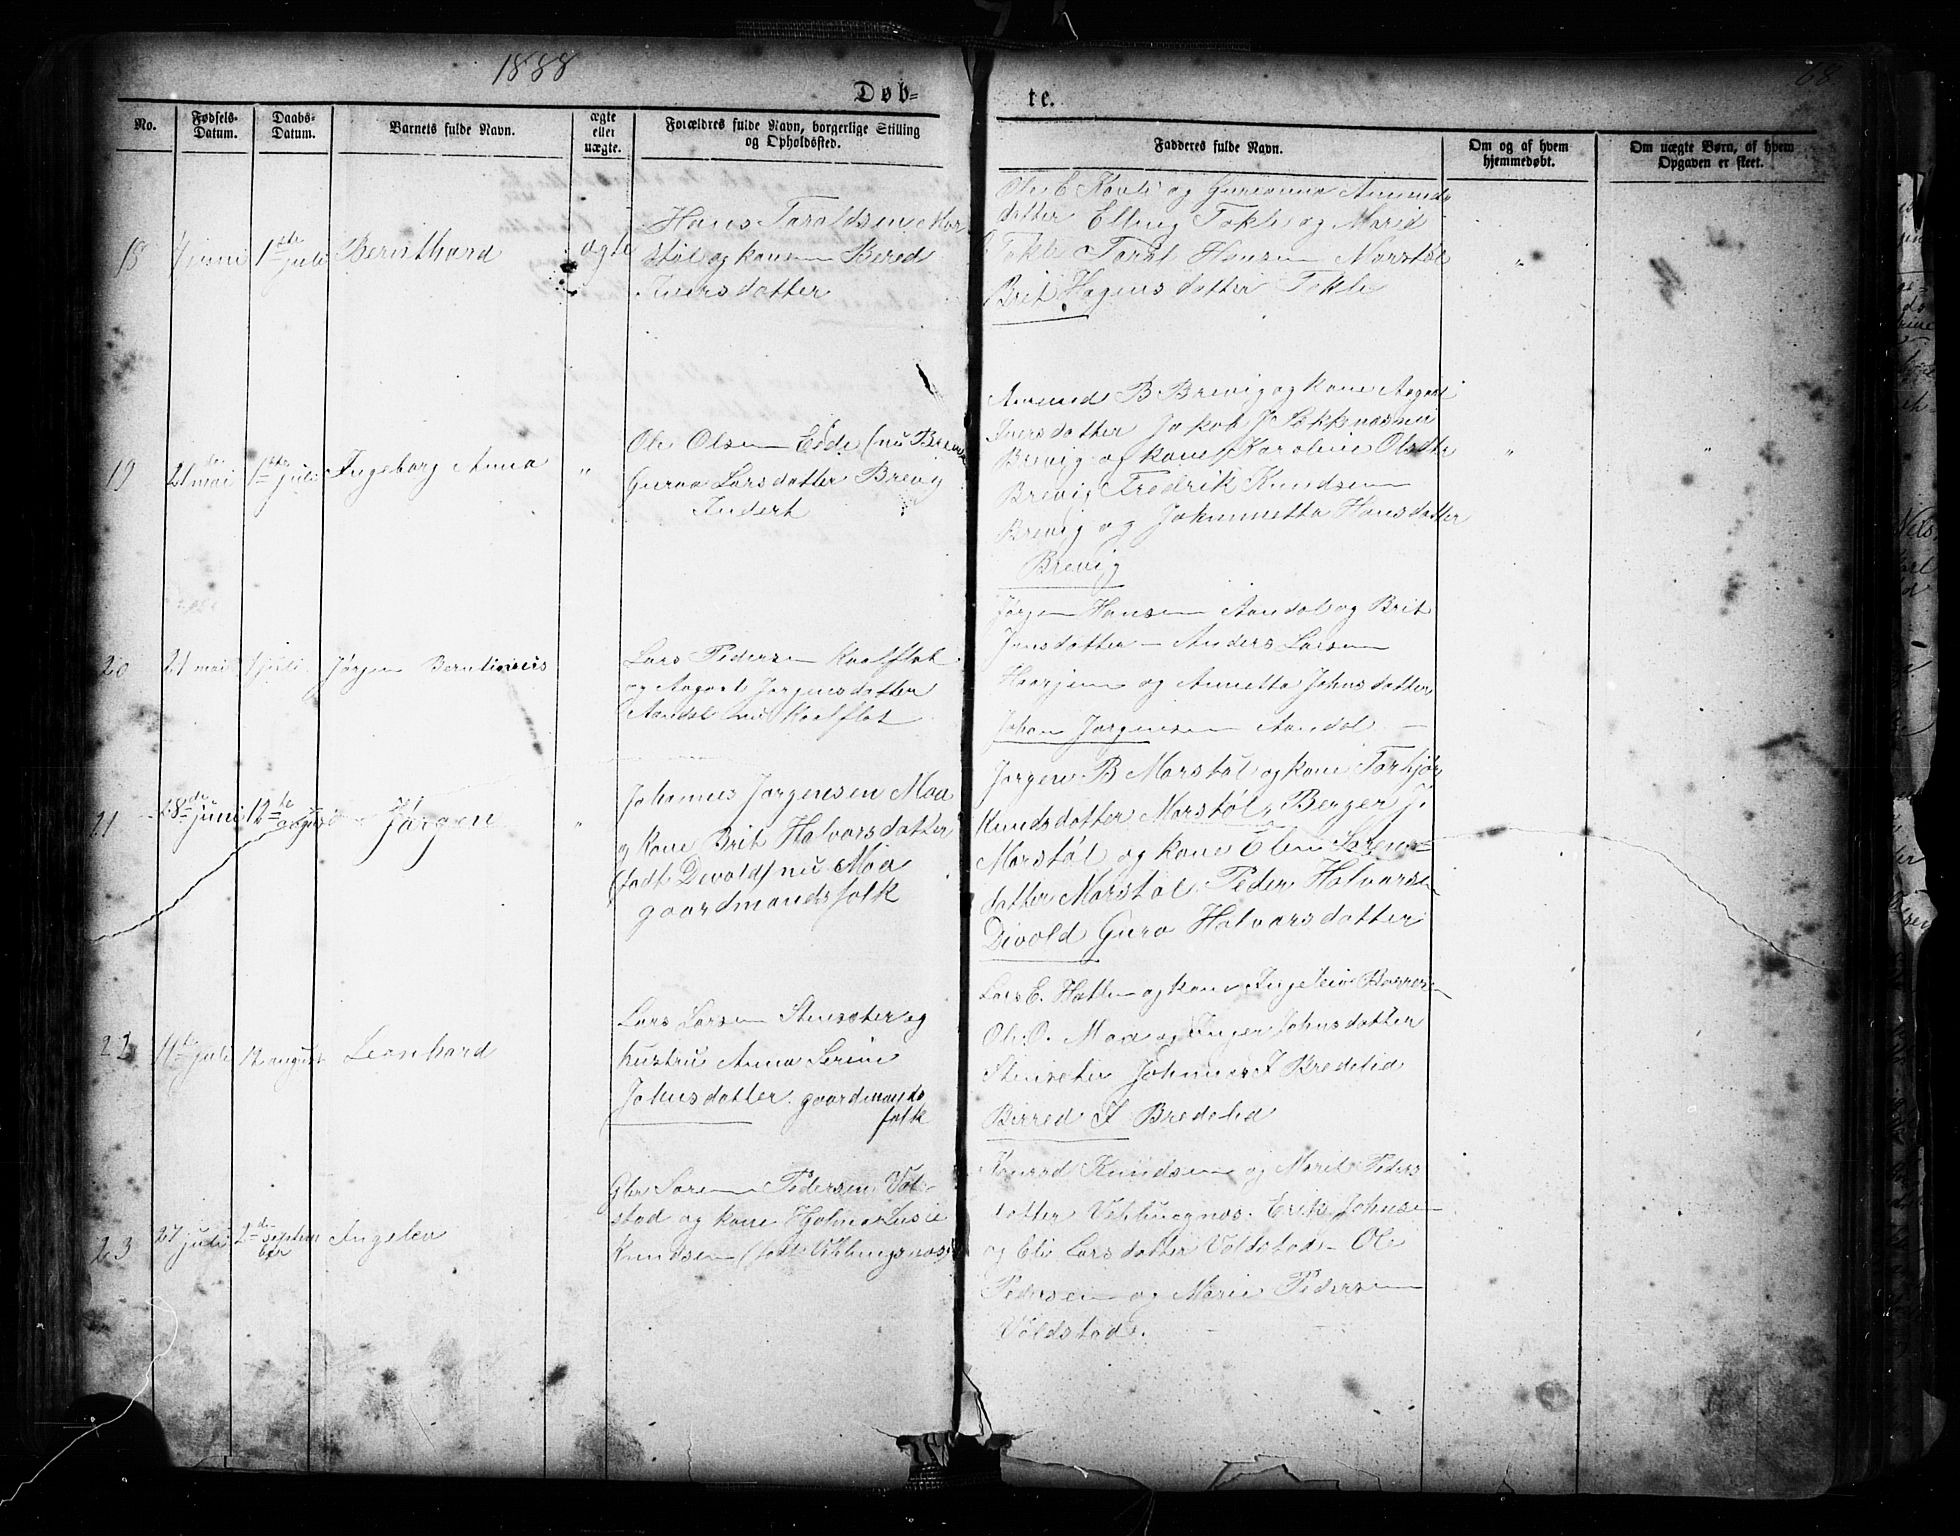 1888
68
Døb-
te.
No.
Fødsels-
Datum.
Daabs-
Datum.
Barnets fulde Navn.
ægte
eller
uægte.
Forældres fulde Navn, borgerlige Stilling
og Opholdssted.
Faddernes fulde Navn.
Om og af hvem
hjemmedøbt.
Om uægte Børn, af hvem
Opgaven er skeet.
18
juni
1ste juli
Bernthard
ægte
Hans Taraldsen Mar
støl og kone Bered
Iversdatter
og Gurianna Amunds
datter Elling Tokle og Marid
Tokle Taral Hansen Marstøl
Brit Hagensdatter Tokle
19
21 mai
1ste juli
Ingeborg Anna
"
Ole Olsen Edde (nu Brevig
Guroa Larsdatter Brevig
Indert
Amund B Brevig og kone Aagaat
Iversdatter Jakob J
Brevig og kone Karoline Olsdtr
Brevig Fredrik Knudsen
Brevig og Johannetta Hansdatter
Brevig
20
21 mai
1 juli
Jørgen Berntinius
Lars Pedersen Kaalflot
og Aagaat Jørgensdatter
Aandal nu Kaalflot
Jørgen Hansen Aandal og Brit
Jensdatter – Anders Larsen
Haarjem og Annetta Johnsdatter
Johan Jørgensen Aandal –
21
28de juni
12te august
Jørgen
"
Johannes Jørgensen Moa
og kone Brit Halvorsdatter
(født Divold) nu Moa
gaardmandsfolk
Jørgen B Marstøl og kone Torbjør
Knudsdatter Marstøl, Berger J.
Marstøl og kone Elen Sørens-
datter Marstøl Peder Halvorsen
Divold Guro Halvorsdatter
22
11te juli
12 august
Leonhard
Lars Larsen Stenseter og
hustru Anna Serine
Johnsdatter. gaardmands
folk
Lars E. Hatlen og kone Ingeleiv
Ole O. Moa og Inger Johnsdatter
Stenseter Johannes I Bredelid
Berred I Bredelid
23
27 juli
2de septem
ber
Angelea
Gbr Søren Pedersen Vol-
stad og kone Hjalma Lusie
Knudsen (født Vikbugnes)
Konrad Knudsen og Marit Peders
datter Vikbugnes. Erik Johnsen
og Eli Larsdatter Voldstad – Ole
Pedersen og Marie Pedersen
Voldstad.